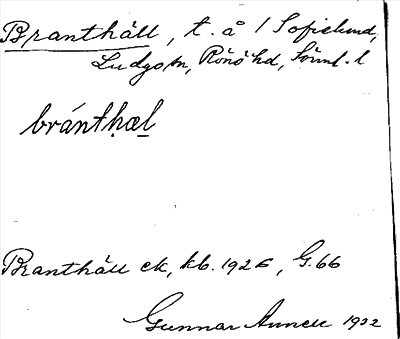 Branthäll, t. å / Sofielund,
Ludgo sn, Rönö hd, Söml. l
bránthæl
Branthäll ek, kb. 1926, G. 66
Gunnar 1932